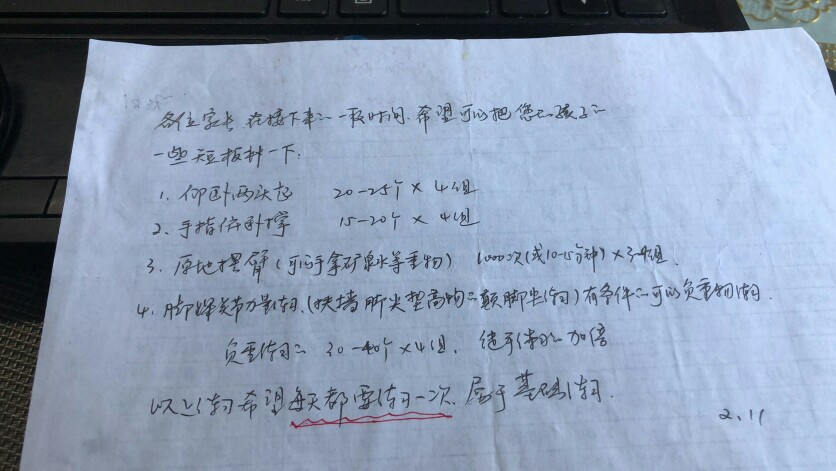 各位家长,在接下来的一段时间,希望可以把您的孩子的
一些短板补一下:
1. 仰卧两头起 20-25个×4组
2. 手指俯卧撑 15-20个×4组
3. 原地摆臂(可以手拿矿泉水等重物) 1000次(或10-15分钟)×3-4组.
4. 脚踝关节力量练习.(扶墙脚尖垫高物的颠脚尖练习)有条件的可以负重物练习.
负重练习的 30-40个×4组, 徒手练习的加倍
以上练习希望每天都要练习一次.属于基础练习.
2.11